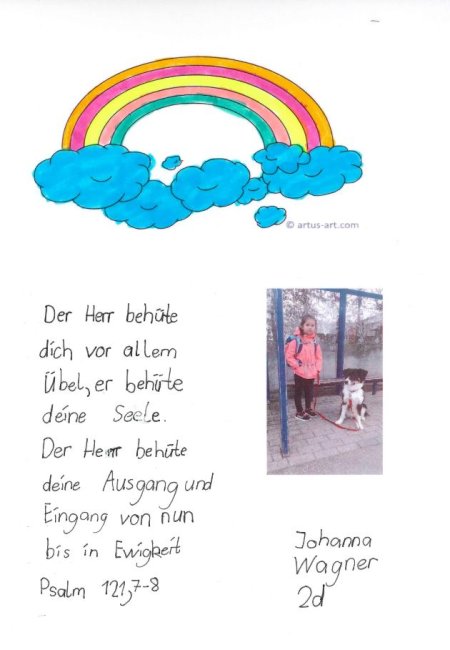 © artus-art.com
Der Herr behüte
dich vor allem
Übel, er behüte
deine Seele.
Der Herr behüte
deine Ausgang und
Eingang von nun
bis in Ewigkeit
Psalm 121,7-8
Johanna
Wagner
2d